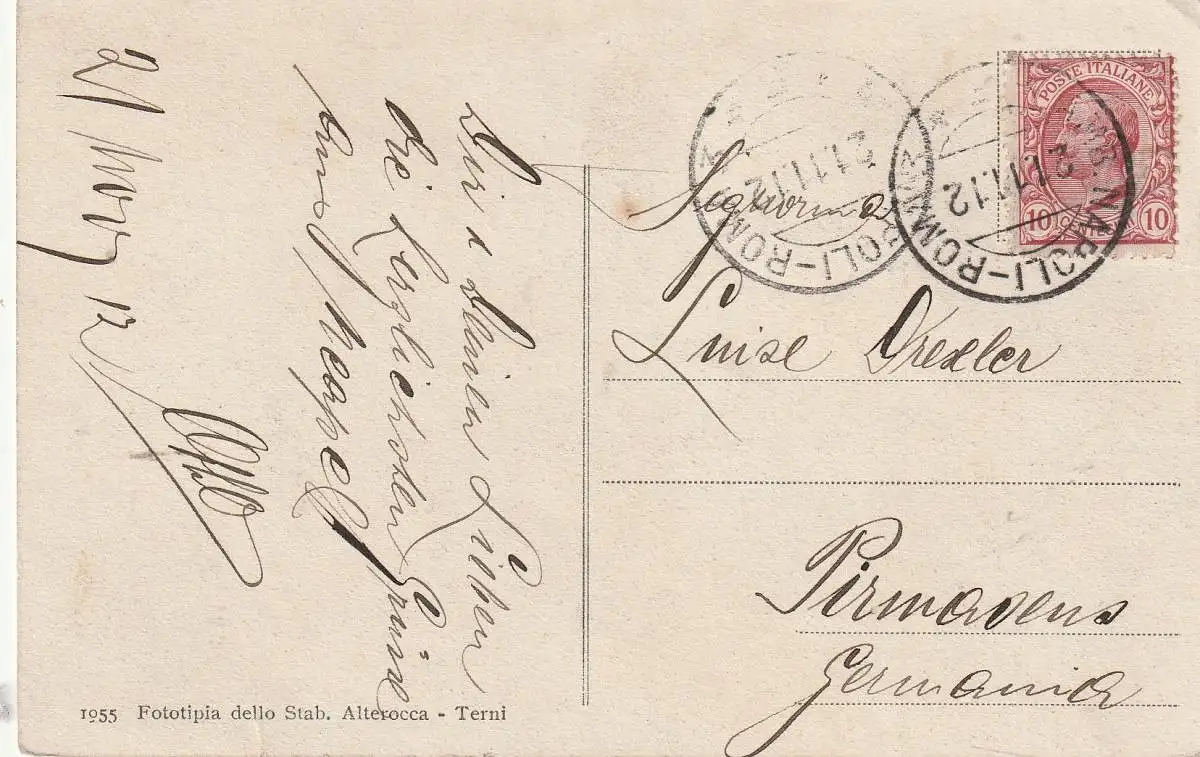 Dir & Deinen Lieben
die herzlichsten Grüsse
aus Neapel
21 Nov 12
Signorina
Luise Drexler
Pirmasens
Germania
POSTE ITALIANE
10 CENTESIMI 10
NAPOLI-ROMA
21.11.12
NAPOLI-ROMA
21.11.12
1955 Fototipia dello Stab. Alterocca - Terni